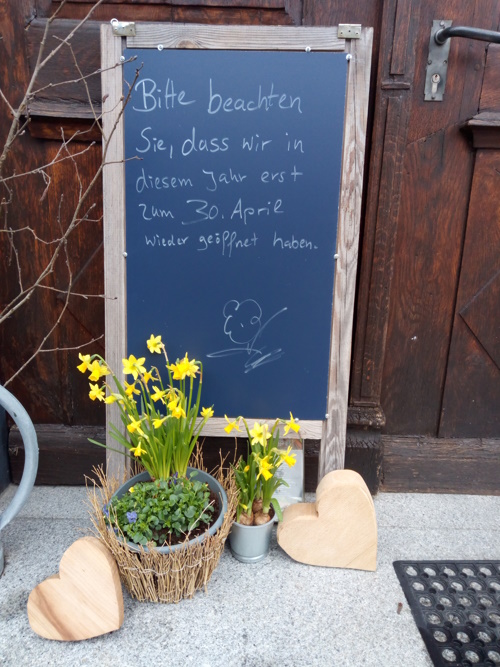 Bitte beachten
Sie, dass wir in
diesem Jahr erst
zum 30. April
wieder geöffnet haben.